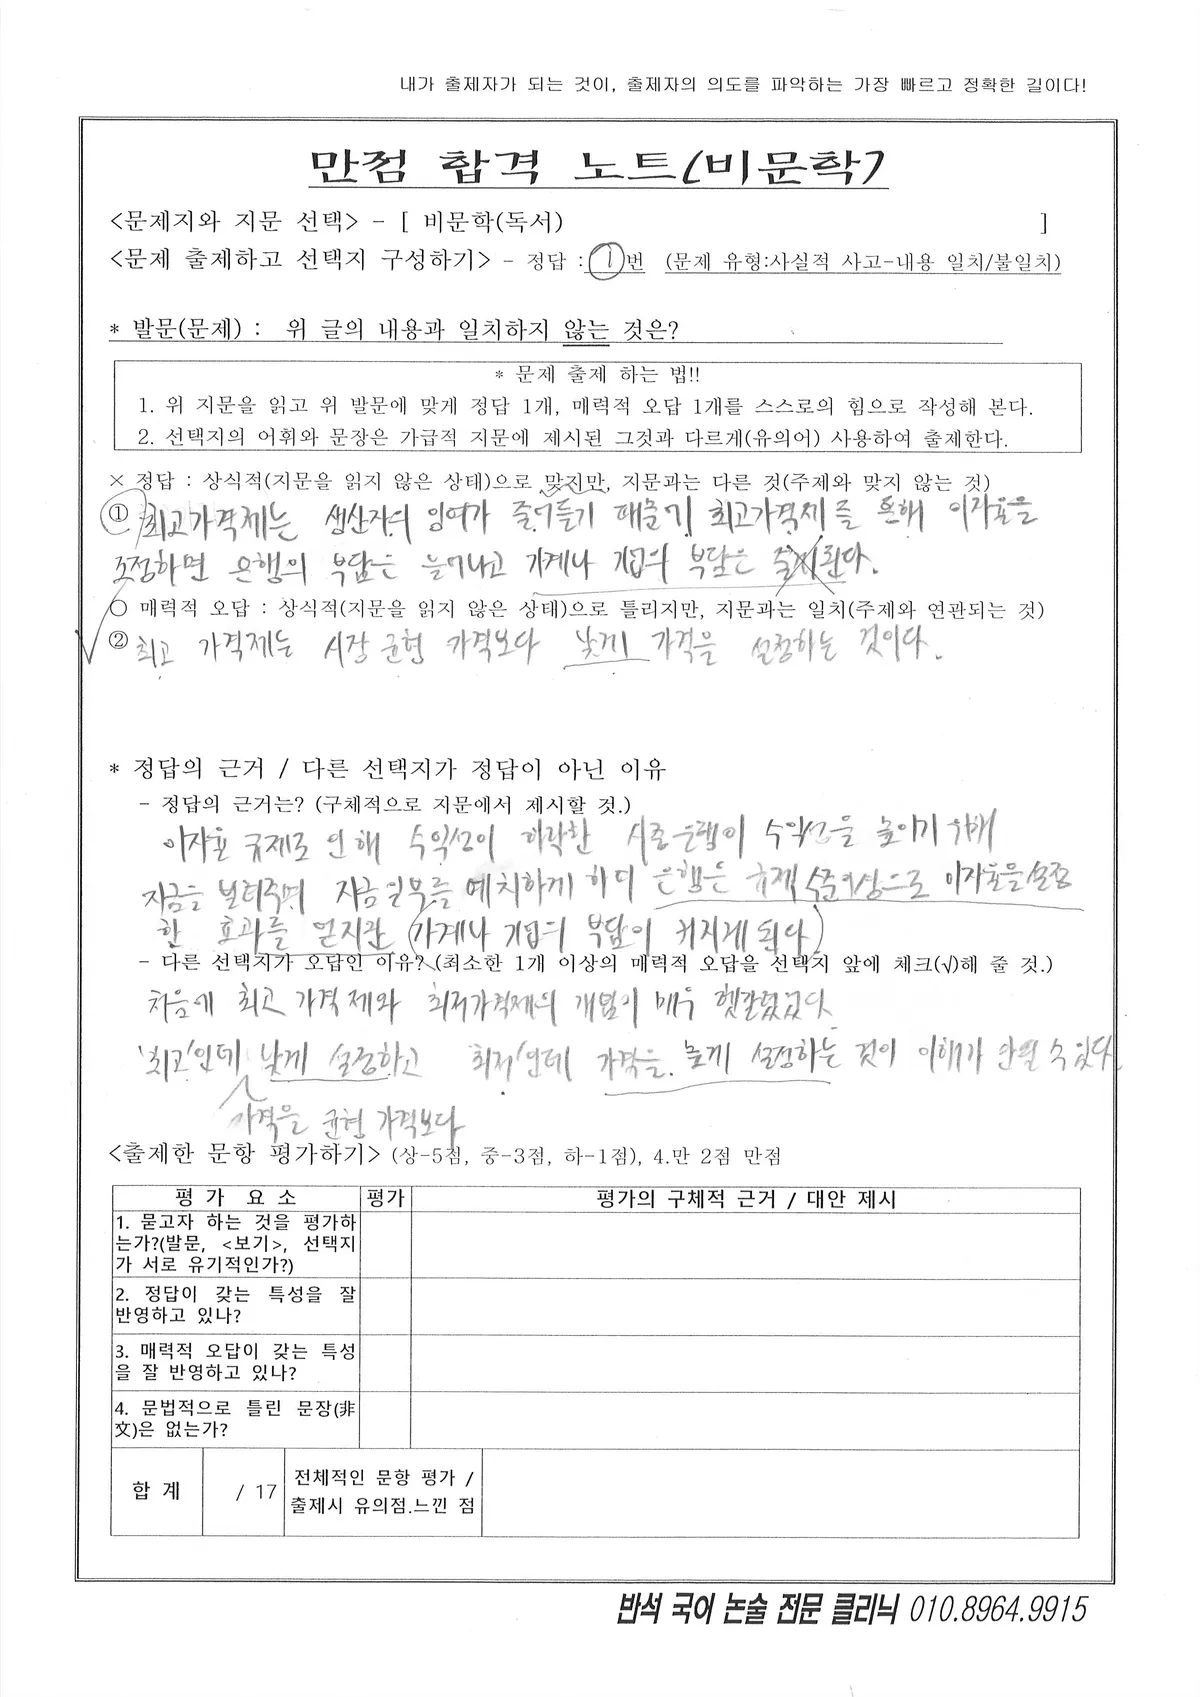 내가 출제자가 되는 것이, 출제자의 의도를 파악하는 가장 빠르고 정확한 길이다!
만점 합격 노트(비문학)
<문제지와 지문 선택> - [ 비문학(독서) ]
<문제 출제하고 선택지 구성하기> - 정답 : 1번 (문제 유형:사실적 사고-내용 일치/불일치)
* 발문(문제) : 위 글의 내용과 일치하지 않는 것은?
* 문제 출제 하는 법!!
1. 위 지문을 읽고 위 발문에 맞게 정답 1개, 매력적 오답 1개를 스스로의 힘으로 작성해 본다.
2. 선택지의 어휘와 문장은 가급적 지문에 제시된 그것과 다르게(유의어) 사용하여 출제한다.
× 정답 : 상식적(지문을 읽지 않은 상태)으로 맞지만, 지문과는 다른 것(주제와 맞지 않는 것)
① 최고가격제는 생산자의 잉여가 줄어들기 때문에 최고가격제를 통해 이자율을
조정하면 은행의 부담은 늘어나고 가계나 기업의 부담은 된다.
○ 매력적 오답 : 상식적(지문을 읽지 않은 상태)으로 틀리지만, 지문과는 일치(주제와 연관되는 것)
② 최고 가격제는 시장 균형 가격보다 낮게 가격을 설정하는 것이다.
* 정답의 근거 / 다른 선택지가 정답이 아닌 이유
- 정답의 근거는? (구체적으로 지문에서 제시할 것.)
이자율 규제로 인해 수익성이 하락한 시중은행이 수익성을 높이기 위해
자금을 빌려주며 자금일부를 예치하게 하며 은행은 규제 수준이상으로 이자율을 설정
한 효과를 얻지만 (가계나 기업의 부담이 커지게 된다)
- 다른 선택지가 오답인 이유? (최소한 1개 이상의 매력적 오답을 선택지 앞에 체크(√)해 줄 것.)
처음에 최고 가격제와 최저가격제의 개념이 매우 헷갈렸었다
'최고'인데 낮게 설정하고 '최저'인데 가격을 높게 설정하는 것이 이해가 안될 수 있다
가격을 균형 가격보다
<출제한 문항 평가하기> (상-5점, 중-3점, 하-1점), 4.만 2점 만점
평 가 요 소 평가 평가의 구체적 근거 / 대안 제시
1. 묻고자 하는 것을 평가하
는가?(발문, <보기>, 선택지
가 서로 유기적인가?)
2. 정답이 갖는 특성을 잘
반영하고 있나?
3. 매력적 오답이 갖는 특성
을 잘 반영하고 있나?
4. 문법적으로 틀린 문장(非
文)은 없는가?
합 계 / 17 전체적인 문항 평가 /
출제시 유의점.느낀 점
반석 국어 논술 전문 클리닉 010.8964.9915